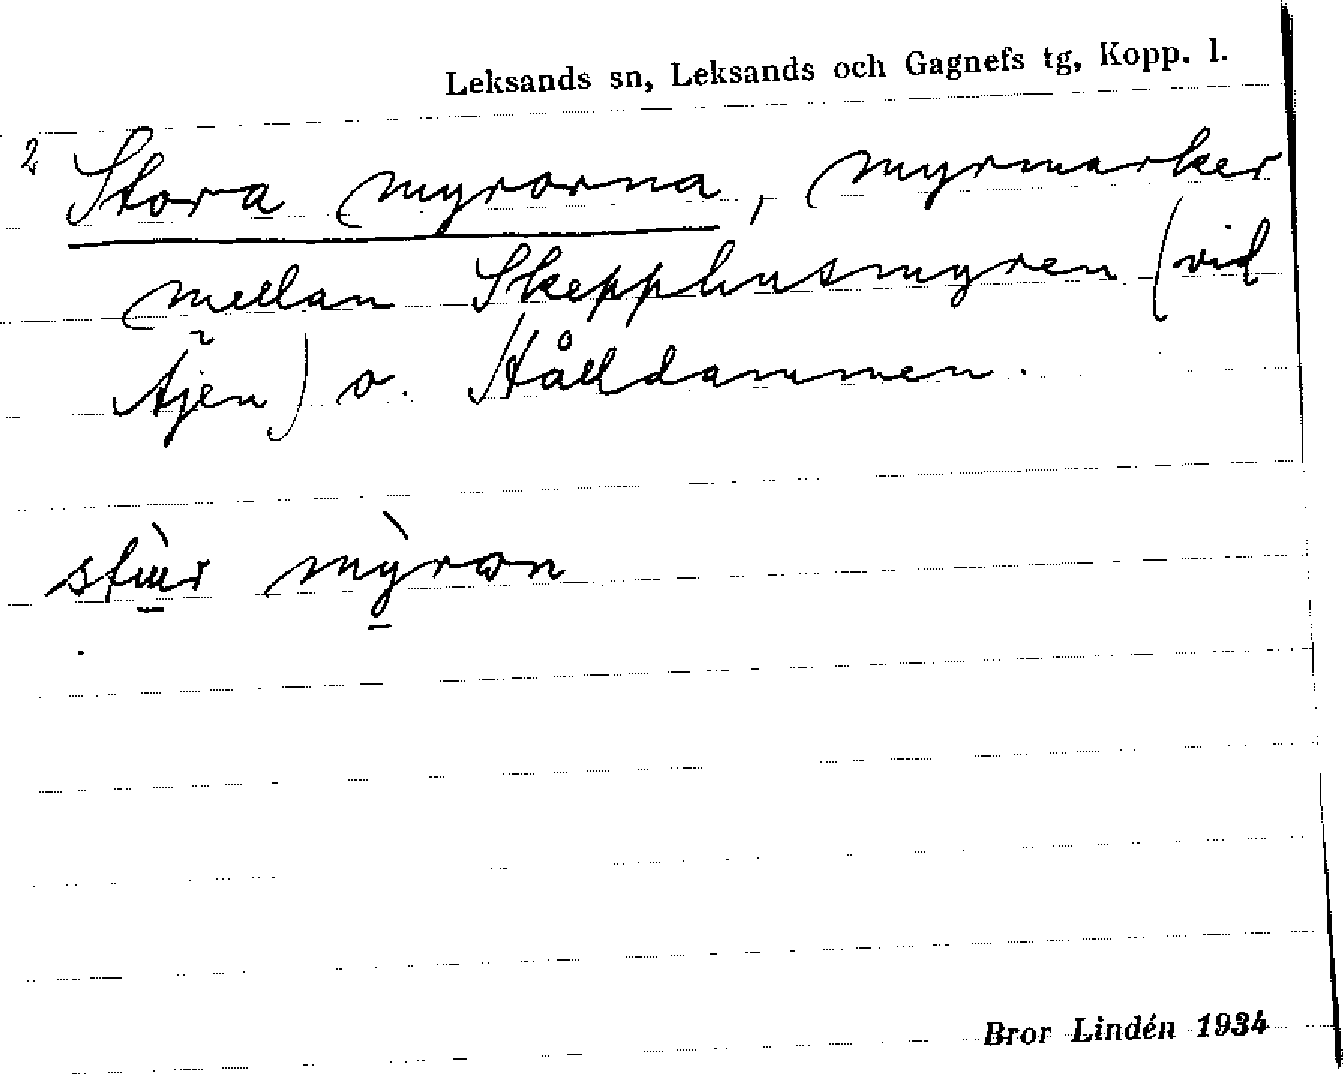 Leksands sn, Leksands och Gagnefs tg, Kopp. l.
2 Stora myrorna, myrmarker
mellan Skepphusmyren (vid
) o. Hålldammen.
myron
Bror Lindén 1934